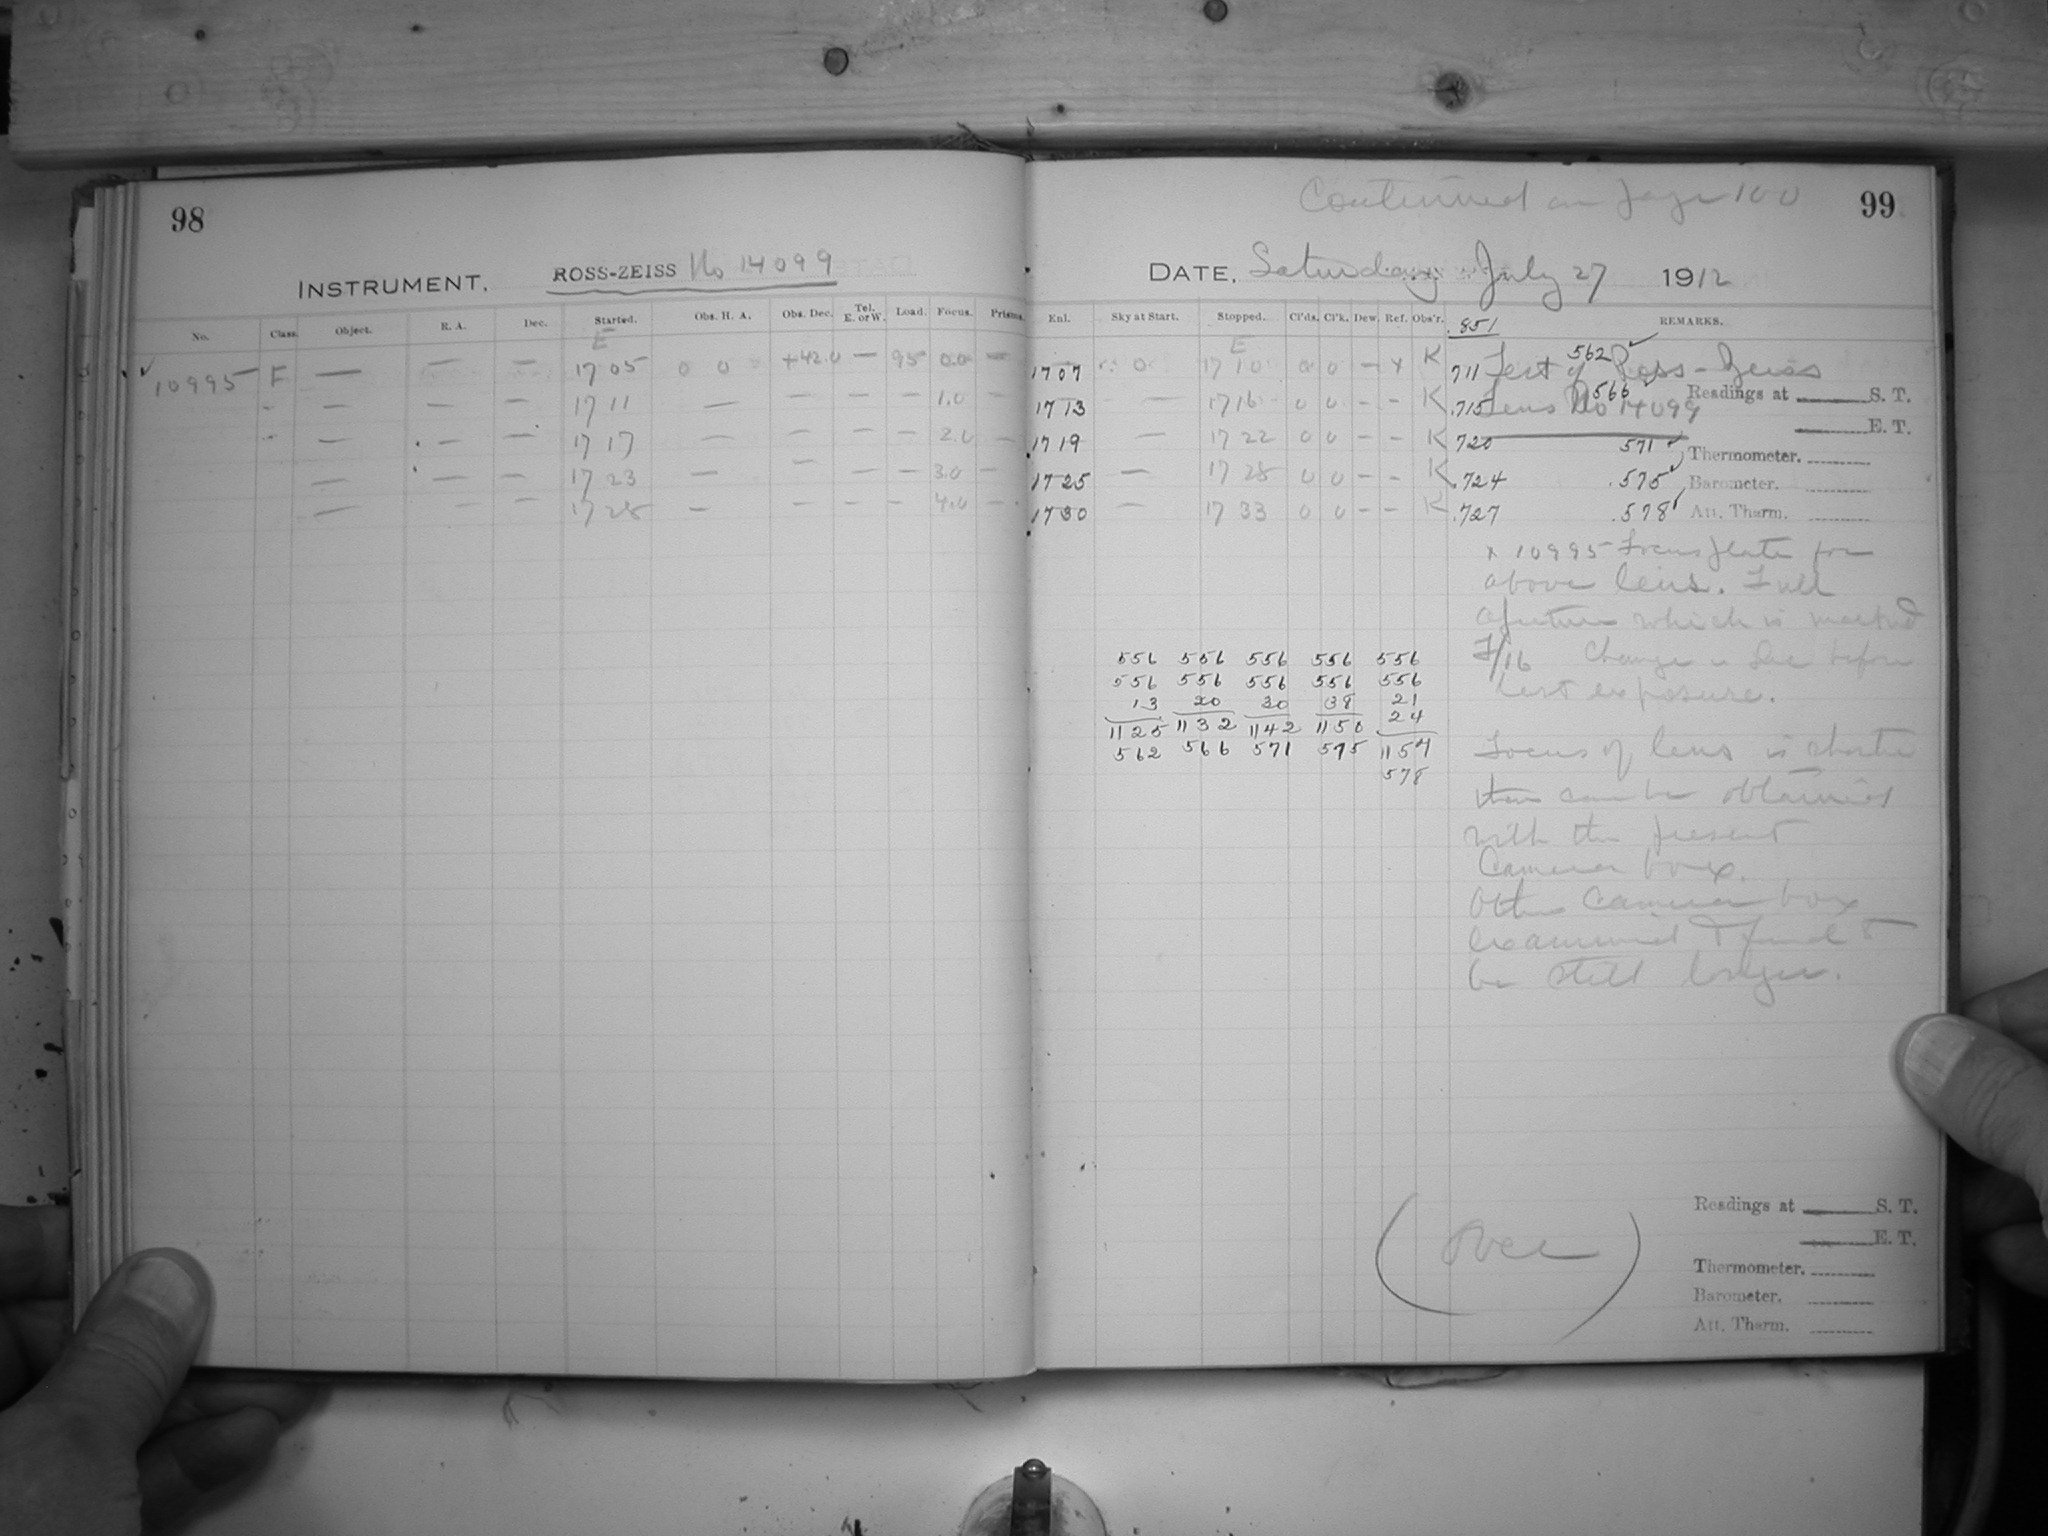 98
INSTRUMENT. ROSS-ZEISS No 14099
No. Class. Object. R. A. Dec. Started. Obs. H. A. Obs. Dec. Tel. E. or W. Load. Focus. Prisms.
E
✓ 10995 F — — — 17 05 0 0 +42.0 — 95 0.0 —
- — — — 17 11 — — — — 1.0 —
- — — — 17 17 — — — — 2.0 —
— — — 17 23 — — — — 3.0 —
— — — 17 28 — — — — 4.0 —
Continued on page 100 99
DATE, Saturday July 27 1912
Enl. Sky at Start. Stopped. Cl'ds. Cl'k. Dew. Ref. Obs'r. .851 REMARKS.
E
1707 0 17 10 0 0 — x K .711 Test of Ross-Zeiss 562 ✓
1713 — 17 16 0 0 - - K .715 Lens No 14099 .566 ✓ Readings at S. T.
E. T.
1719 — 17 22 0 0 - - K 720 571 ✓ Thermometer.
1725 — 17 28 0 0 - - K .724 .575 ✓ Barometer.
1730 — 17 33 0 0 - - K .727 .578 ✓ Att. Therm.
x 10995 Focus plate for
above lens. Full
aperture which is marked
F/16 Change is due before
last exposure.
556 556 556 556 556
556 556 556 556 556
13 20 30 38 21
1125 1132 1142 1150 24
562 566 571 575 1154
578
Focus of lens is shorter
than can be obtained
with the present
Camera box.
Other Camera box
examined & found to
be still longer.
(Over)
Readings at S. T.
E. T.
Thermometer.
Barometer.
Att. Therm.